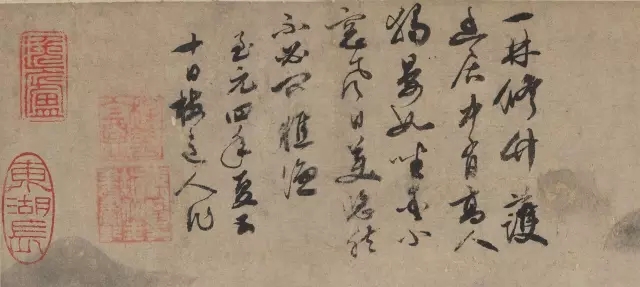 一林修竹護
幽居中有高人
獨晏如坐對小
窗風日美悠然
不必問樵漁
至元四年夏五
十日梅道人作
東湖長